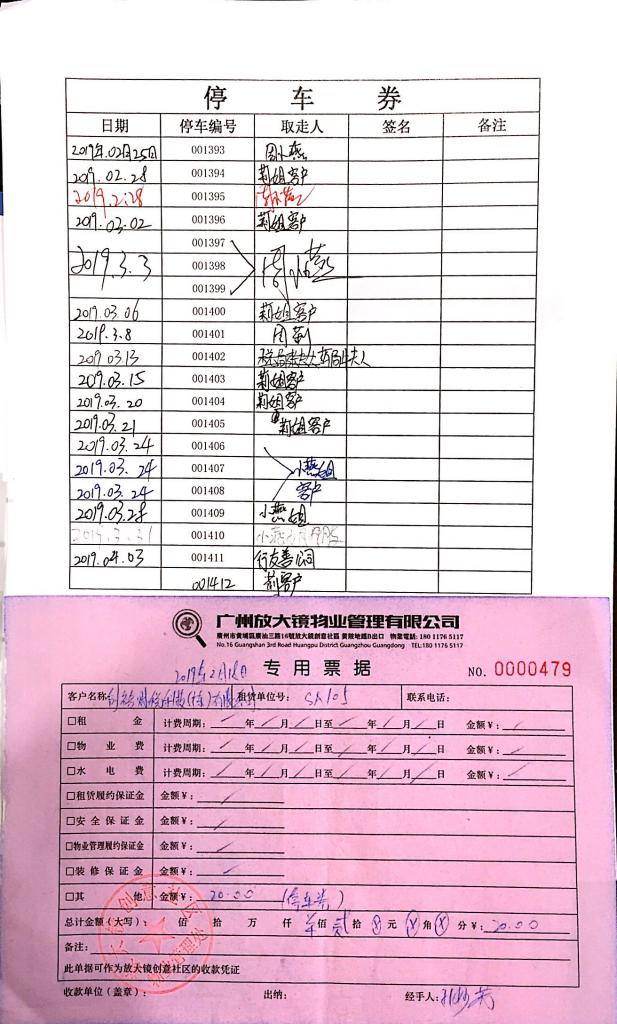 停车券
日期 停车编号 取走人 签名 备注
2019年.02月25日 001393 周小燕
2019.02.28 001394 莉姐客户
2019.2.28 001395
2019.03.02 001396 莉姐客户
001397
2019.3.3 001398 周小燕
001399
2019.03.06 001400 莉姐客户
2019.3.8 001401 周莉
2019 03.13 001402
2019.03.15 001403 莉姐客户
2019.03.20 001404 莉姐客户
2019.03.21 001405 莉姐客户
2019.03.24 001406
2019.03.24 001407 小燕姐
2019.03.24 001408 客户
2019.03.28 001409 小燕姐
2019.3.31 001410
2019.04.03 001411 行友善公司
001412 莉客户
广州放大镜物业管理有限公司
廣州市黄埔區廣汕三路16號放大鏡創意社區 黄陂地鐵D出口 物業電話: 180 1176 5117
No.16 Guangshan 3rd Road Huangpu District Guangzhou Guangdong TEL:180 1176 5117
专用票据
NO. 0000479
客户名称: 租赁单位号: 联系电话:
□租金 计费周期: 年 月 日至 年 月 日 金额¥:
□物业费 计费周期: 年 月 日至 年 月 日 金额¥:
□水电费 计费周期: 年 月 日至 年 月 日 金额¥:
□租赁履约保证金 金额¥:
□安全保证金 金额¥:
□物业管理履约保证金 金额¥:
□装修保证金 金额¥:
□其他 金额¥: 20.00 (停车券)
总计金额(大写): 佰 拾 万 仟 佰 贰 拾 元 角 分 ¥: 20.00
备注:
此单据可作为放大镜创意社区的收款凭证
收款单位(盖章): 出纳: 经手人: